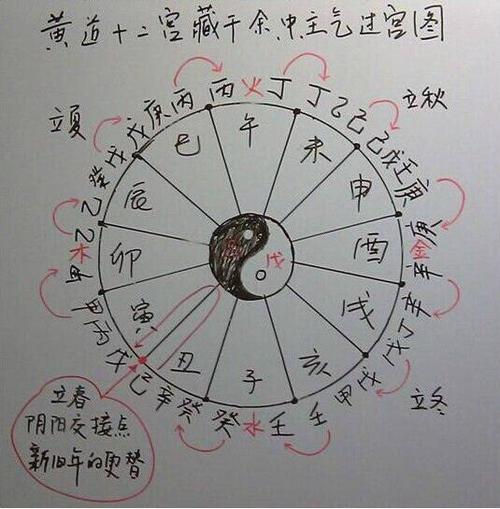 黄道十二宫藏干余、中主气过宫图
丙火丁
丁乙己
己戊壬庚
庚金辛
辛丁戊
戊甲壬
壬水癸
癸辛己
戊丙甲
甲木乙
乙癸戊
戊庚丙
立夏
立秋
立冬
午
未
申
酉
戌
亥
子
丑
寅
卯
辰
巳
戊
立春
阴阳交接点
新旧年的更替